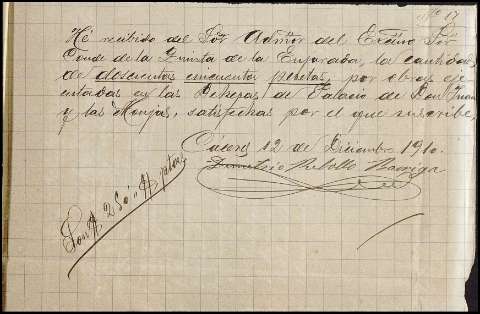 Nº 17
He recibido del Sor Admor del Excmo Sor
Conde de la Quinta de la Enjarada, la cantidad
de doscientas cincuenta pesetas, por obras eje
cutadas en las Dehesas de Palacio de Don Juan
y las Monjas, satisfechas por el que suscribe,
Cáceres 12 de Diciembre 1910.
Rebollo Barriga
Son # 250 " # ptas